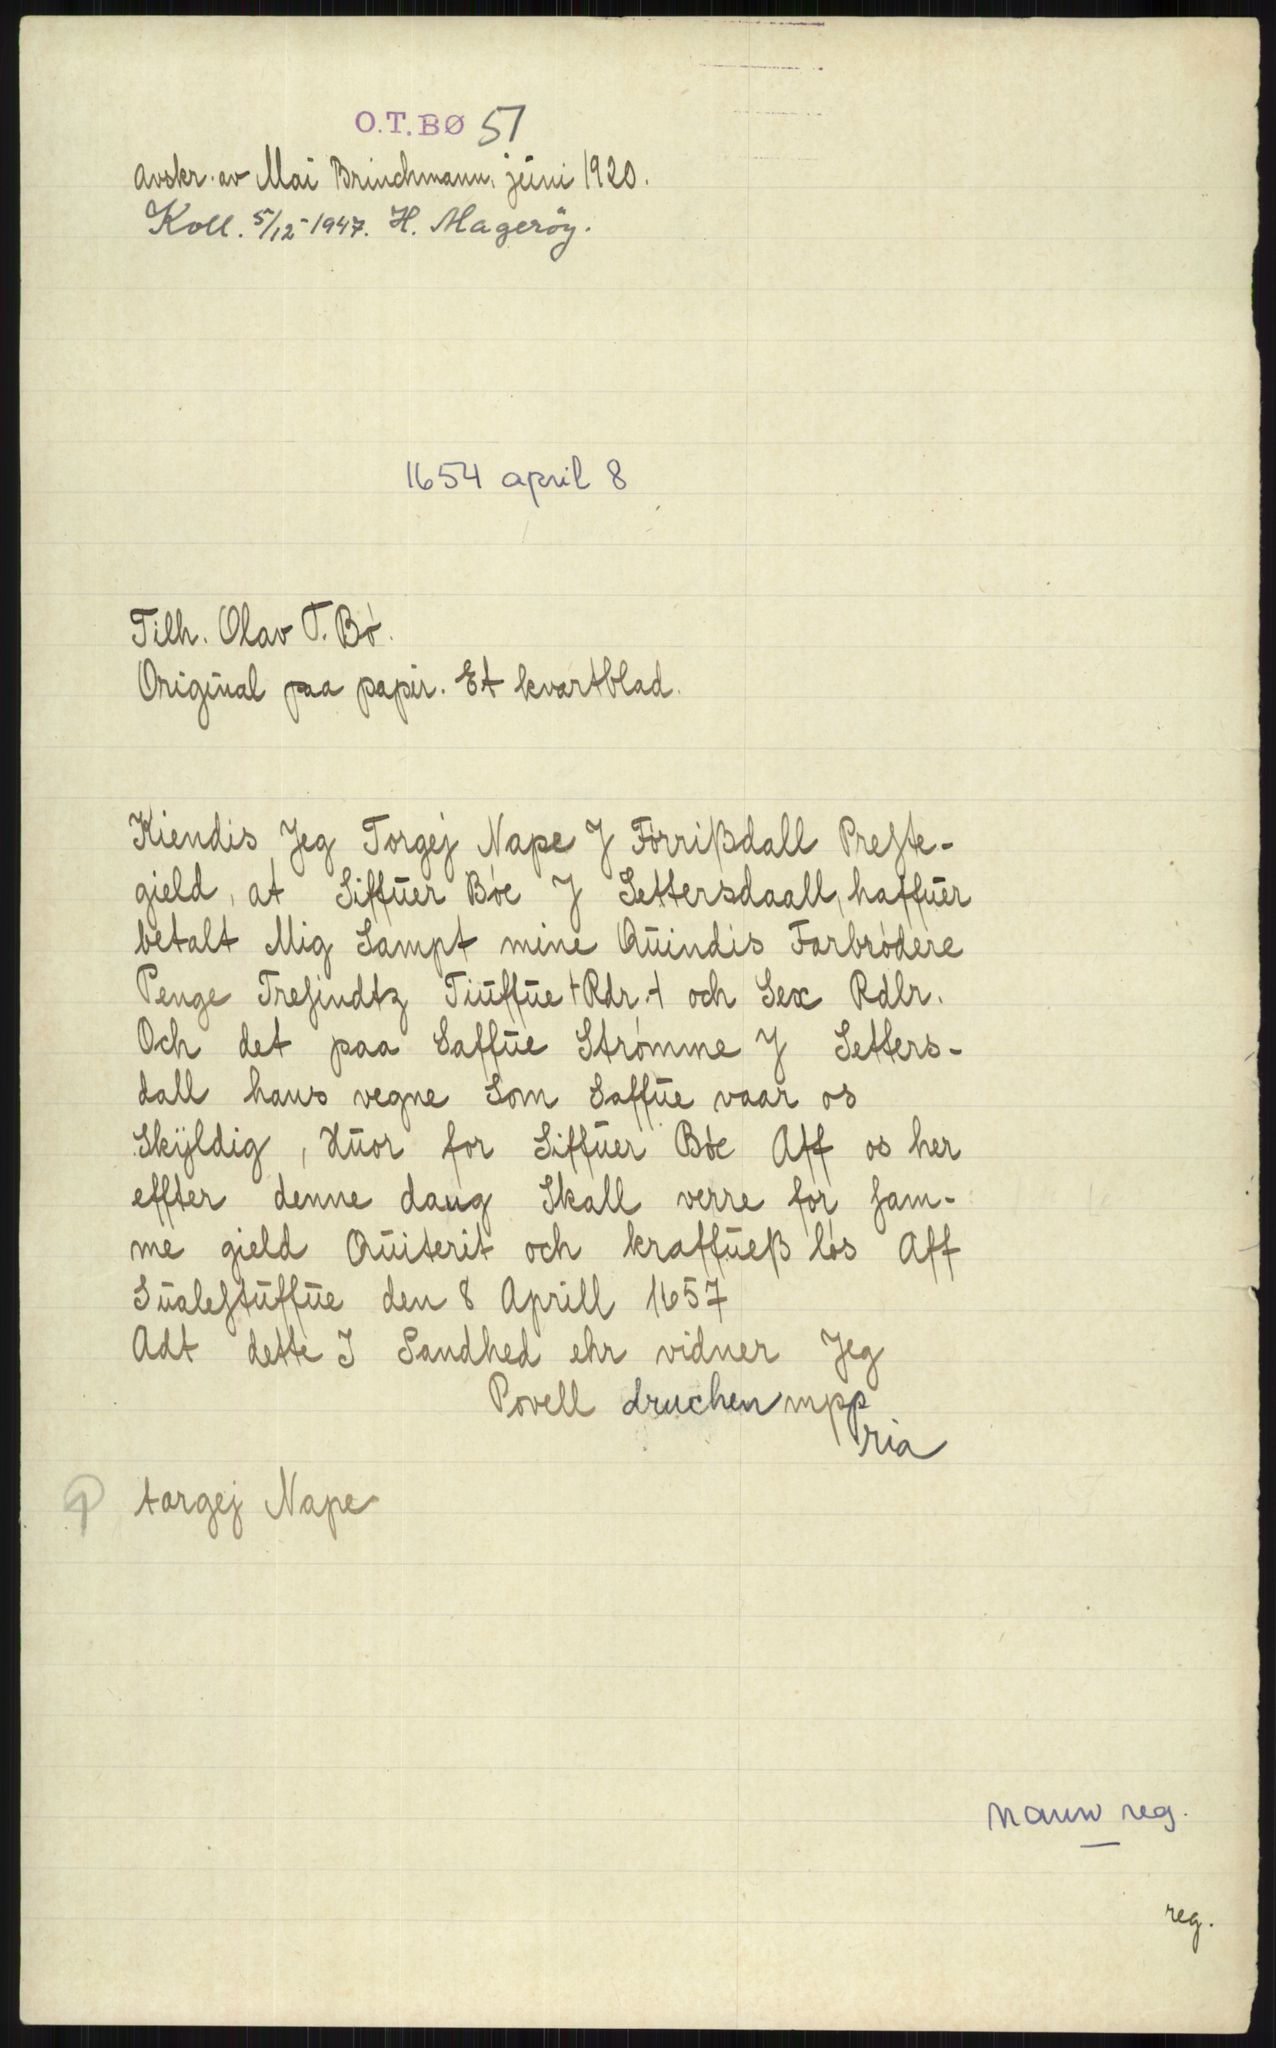 O.T.BØ 51
Avskr. av Mai Brinchmann, juni 1920.
Koll. 5/12-1947. H. Magerøy.
1654 april 8
Tilh. Olav T. Bø.
Original paa papir. Et kvartblad.
Kiendis Jeg Torgej Nape J Førrißdall Preste-
gield, at Siffuer Bøe J Settersdaall, haffuer
betalt Mig Sampt mine Quindis Farbrødere
Penge Tresindtz Tiuffue +Rdr.+ och Sex Rdlr.
Och det paa Saffue Strømme J Setters-
dall hans vegne Som Saffue vaar os
Skÿldig, Huor for Siffuer Bøe Aff os her
effter denne daug Skall verre for sam-
me gield Quiterit och kraffueß løs Aff
Sualestuffue den 8 Aprill 1657
Adt dette J Sandhed ehr vidner Jeg
Povell druchen mpp
ria
torgej Nape
navn reg.
reg.